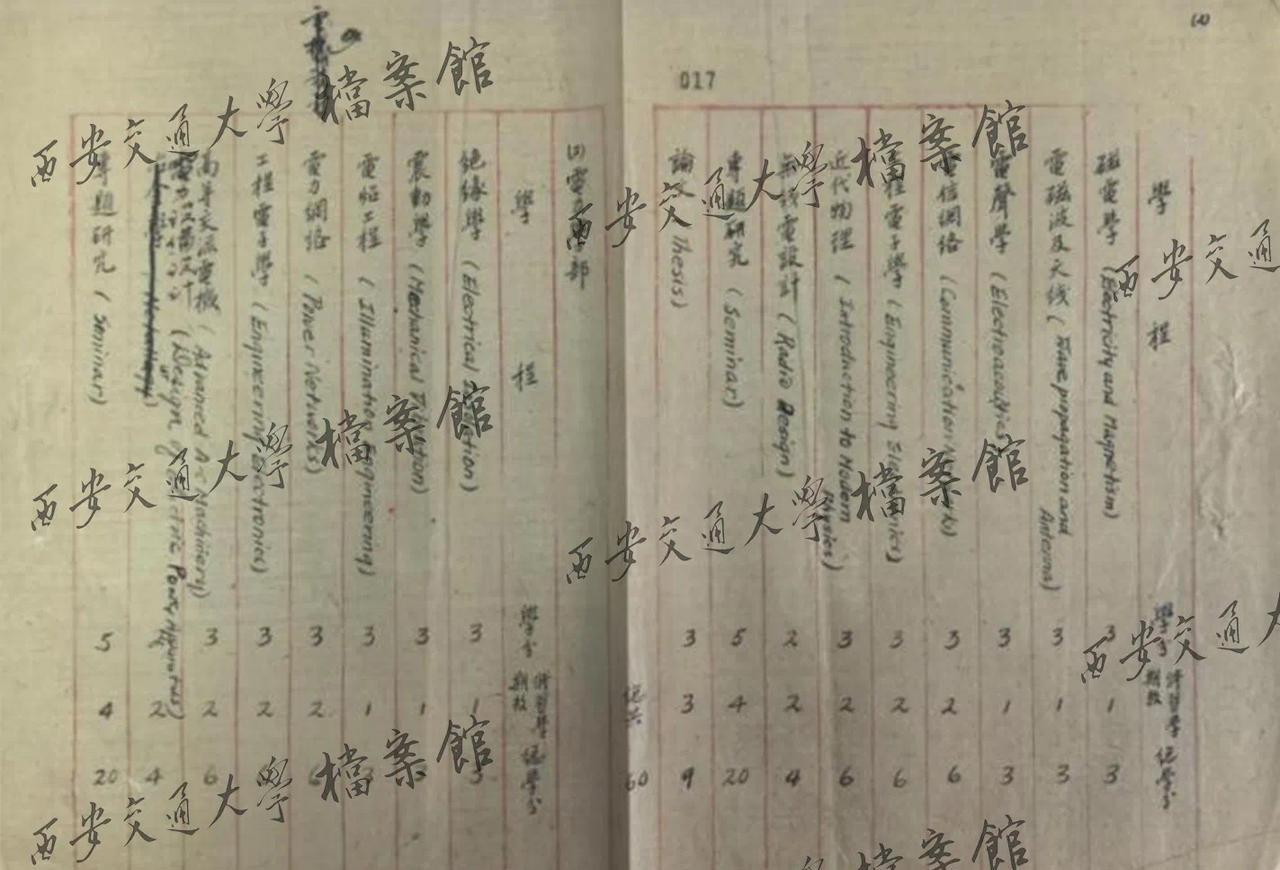 017
學程 學分 修習學期數 總學分
磁電學 (Electricity and Magnetism) 3 1 3
電磁波及天线 (Wave propagation and Antenna) 3 1 3
電聲學 (Electroacoustics) 3 1 3
電信網絡 (Communication Networks) 3 2 6
工程電子學 (Engineering Electronics) 3 2 6
近代物理 (Introduction to Modern Physics) 3 2 6
無线電設計 (Radio Design) 2 2 4
專題研究 (Seminar) 5 4 20
論文 (Thesis) 3 3 9
總共 60
電力 部
學程 學分 修習學期數 總學分
絕緣學 (Electrical Insulation) 3 1 3
震動學 (Mechanical Vibration) 3 1
工程 (Illumination Engineering) 3 1
電力網絡 (Power Networks) 3 2 6
工程電子學 (Engineering Electronics) 3 2
高等交流電機 (Advanced A-C Machinery) 3 2 6
電力設備設計 (Design of Electric Power Apparatus) 2 4
專題研究 (Seminar) 5 4 20
西安交通大學檔案館
西安交通大學檔案館
西安交通大學檔案館
西安交通大學檔案館
西安交通大學檔案館
西安交通
西安交通大
學檔案館